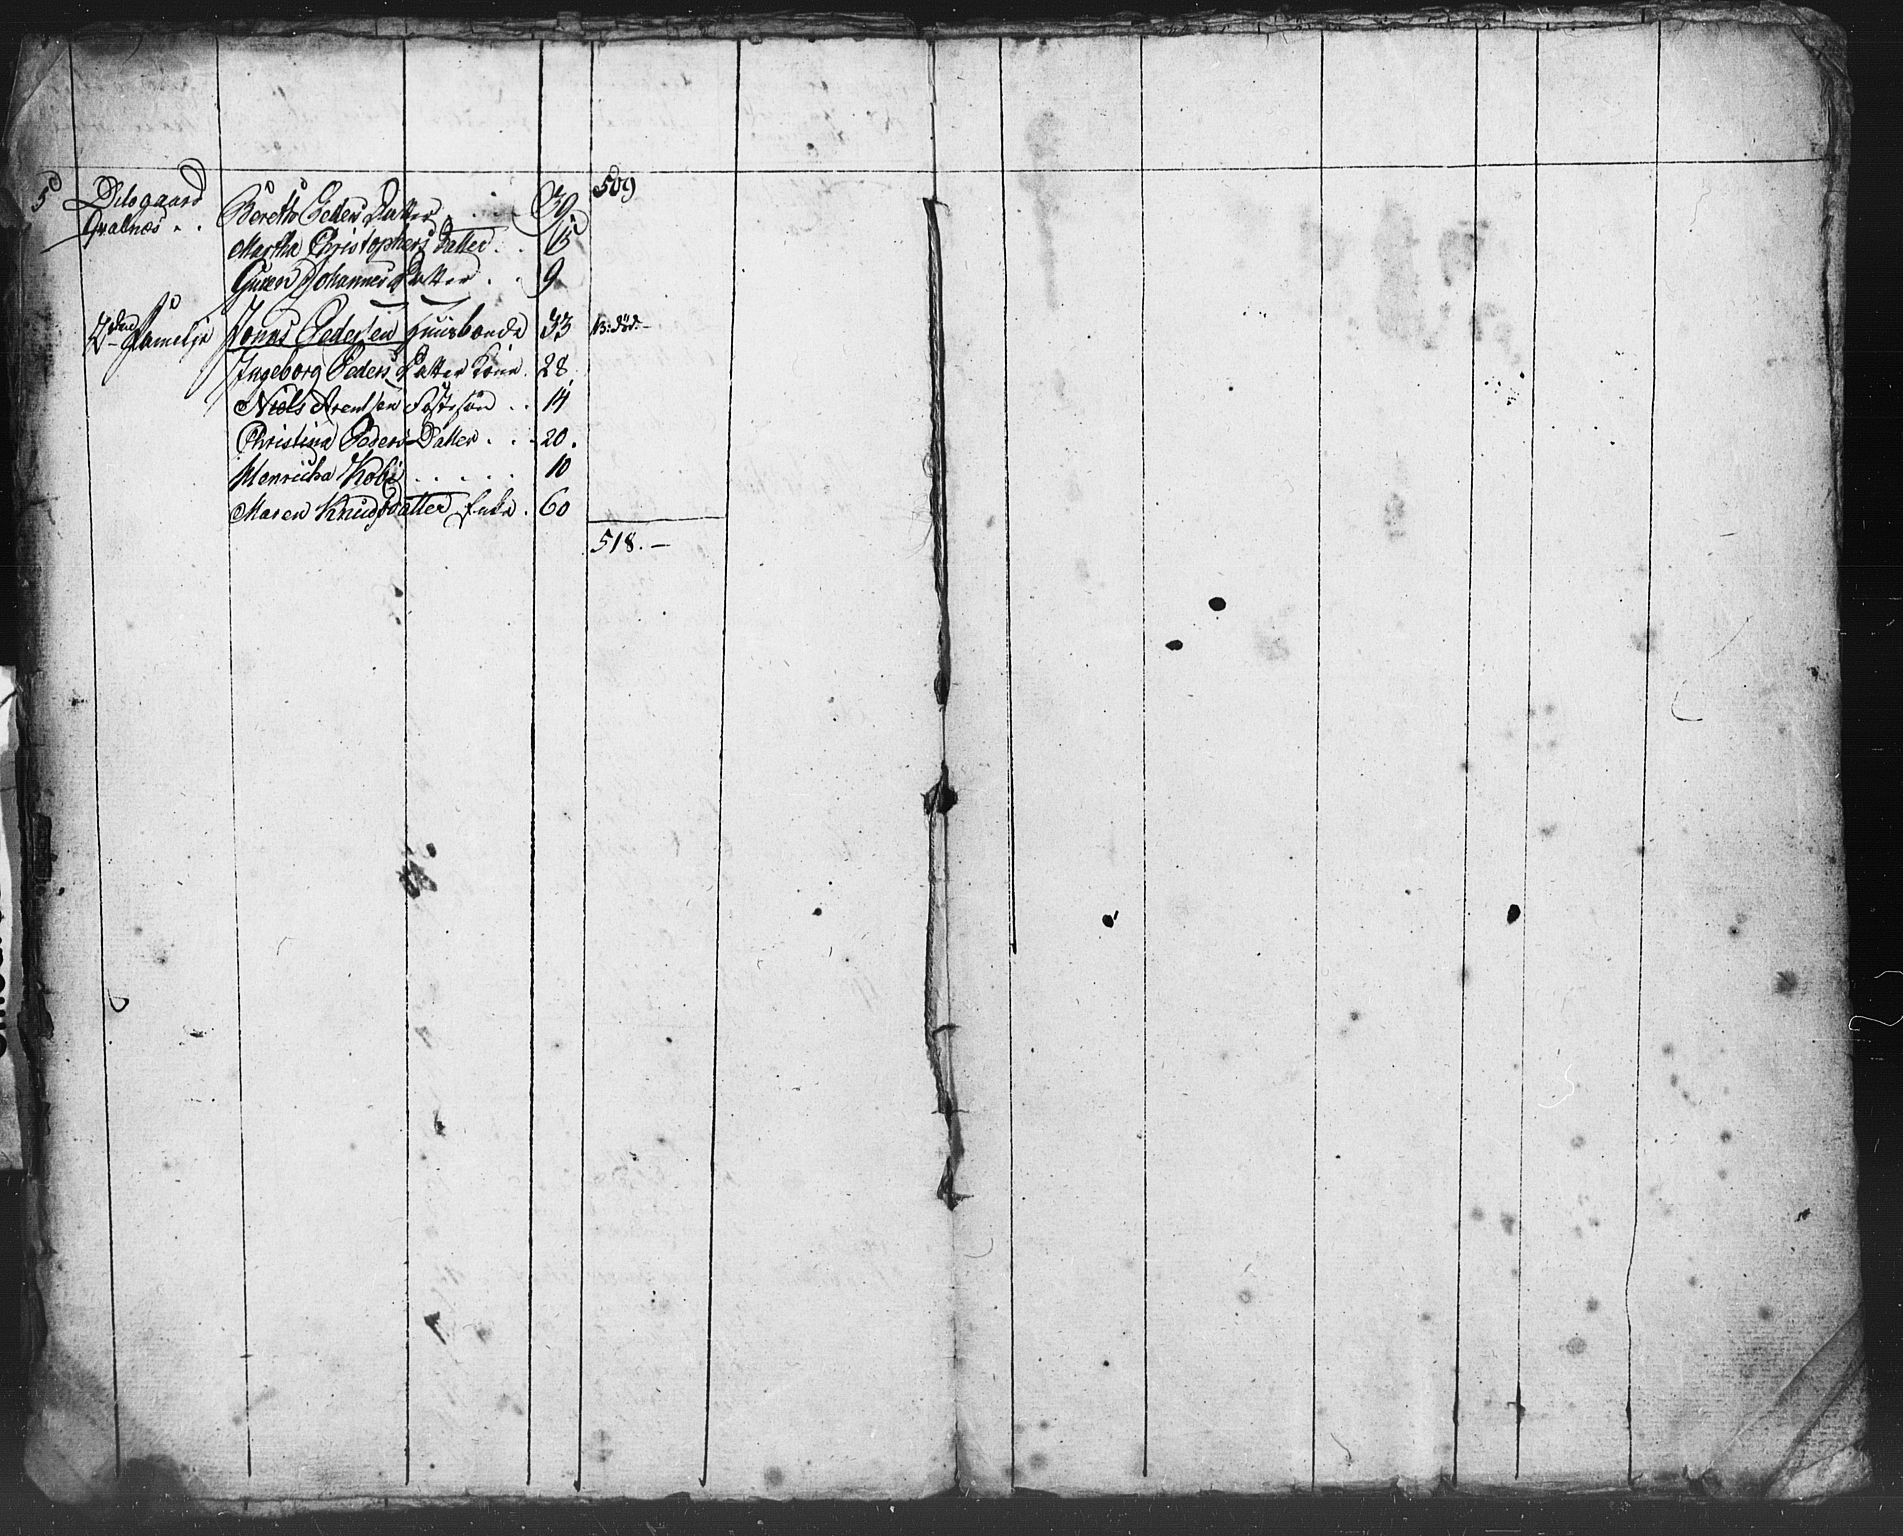 5 Bereth Peders Datter . . . 30. 509
Qvalnæs . . Martha Christophers Datter . . 15
Guren Johannes Datter . . 9
2den Familje Jonas Pedersen Huusbonde 33 N3: død. –
Ingeborg Peders Datter Kone. 28
Niels Arentsen Fostersøn . . 14
Christina Peders Datter . . . 20.
Henricha Kobi . . . . . 10
Maren Knudsdatter Enke . 60
518. –